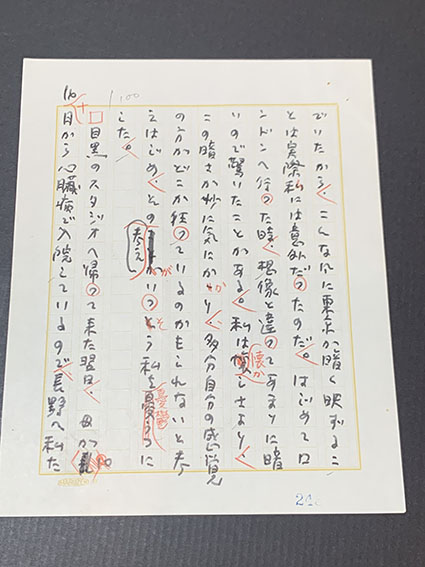 でいたから、こんな風に東京が暗く映ずるこ
とは実際私には意外だったのだ。はじめてロ
ンドンへ行った時、想像と違ってあまりに暗
いので驚いたことがある。私は懐しさより、
懐か
この暗さが妙に気にかかり、多分自分の感覚
の方がどこか狂っているのかもしれないと考
えはじめ、その考えがいっそう私を憂うつに
憂鬱
した。
目黒のスタジオへ帰って来た翌日、母が
日から心臓病で入院しているので長野へ私た